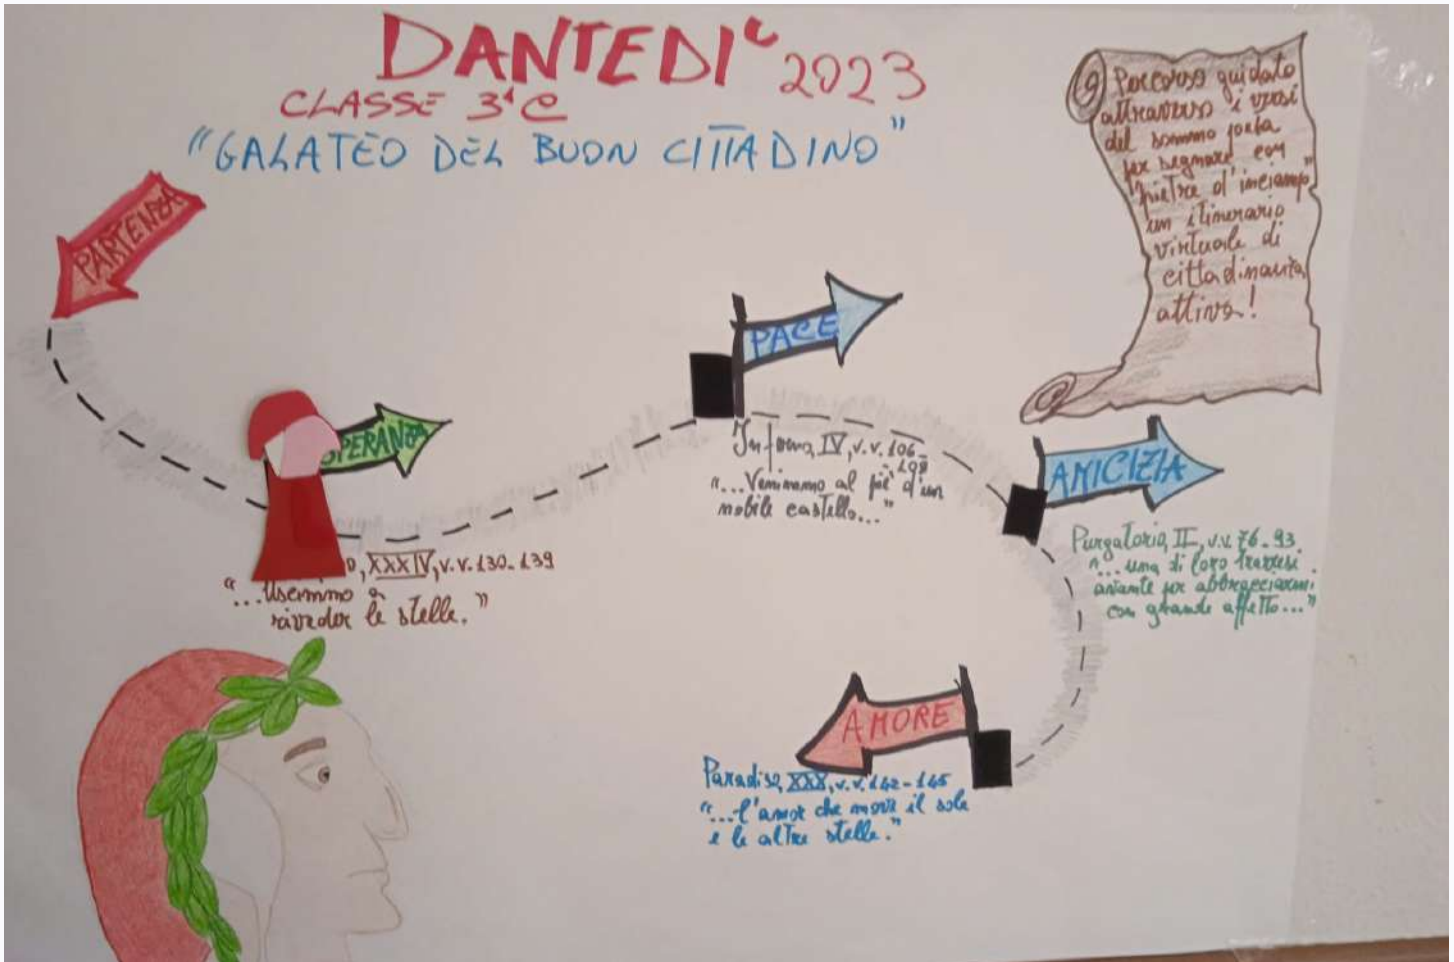 DANTEDI' 2023
CLASSE 3ª C
"GALATEO DEL BUON CITTADINO"
Percorso guidato
attraverso i versi
del sommo poeta
per segnare con
"pietre d'inciampo"
un itinerario
virtuale di
cittadinanza
attiva!
PARTENZA
SPERANZA
o, XXXIV, v.v. 130-139
"...Uscimmo a
riveder le stelle."
PACE
Inferno, IV, v.v. 106-
108
"...Venimmo al piè d'un
nobile castello..."
AMICIZIA
Purgatorio, II, v.v. 76-93
"...una di loro trarresi
avante per abbracciarmi
con grande affetto..."
AMORE
Paradiso, XXX, v.v. 142-145
"...l'amor che move il sole
e le altre stelle."